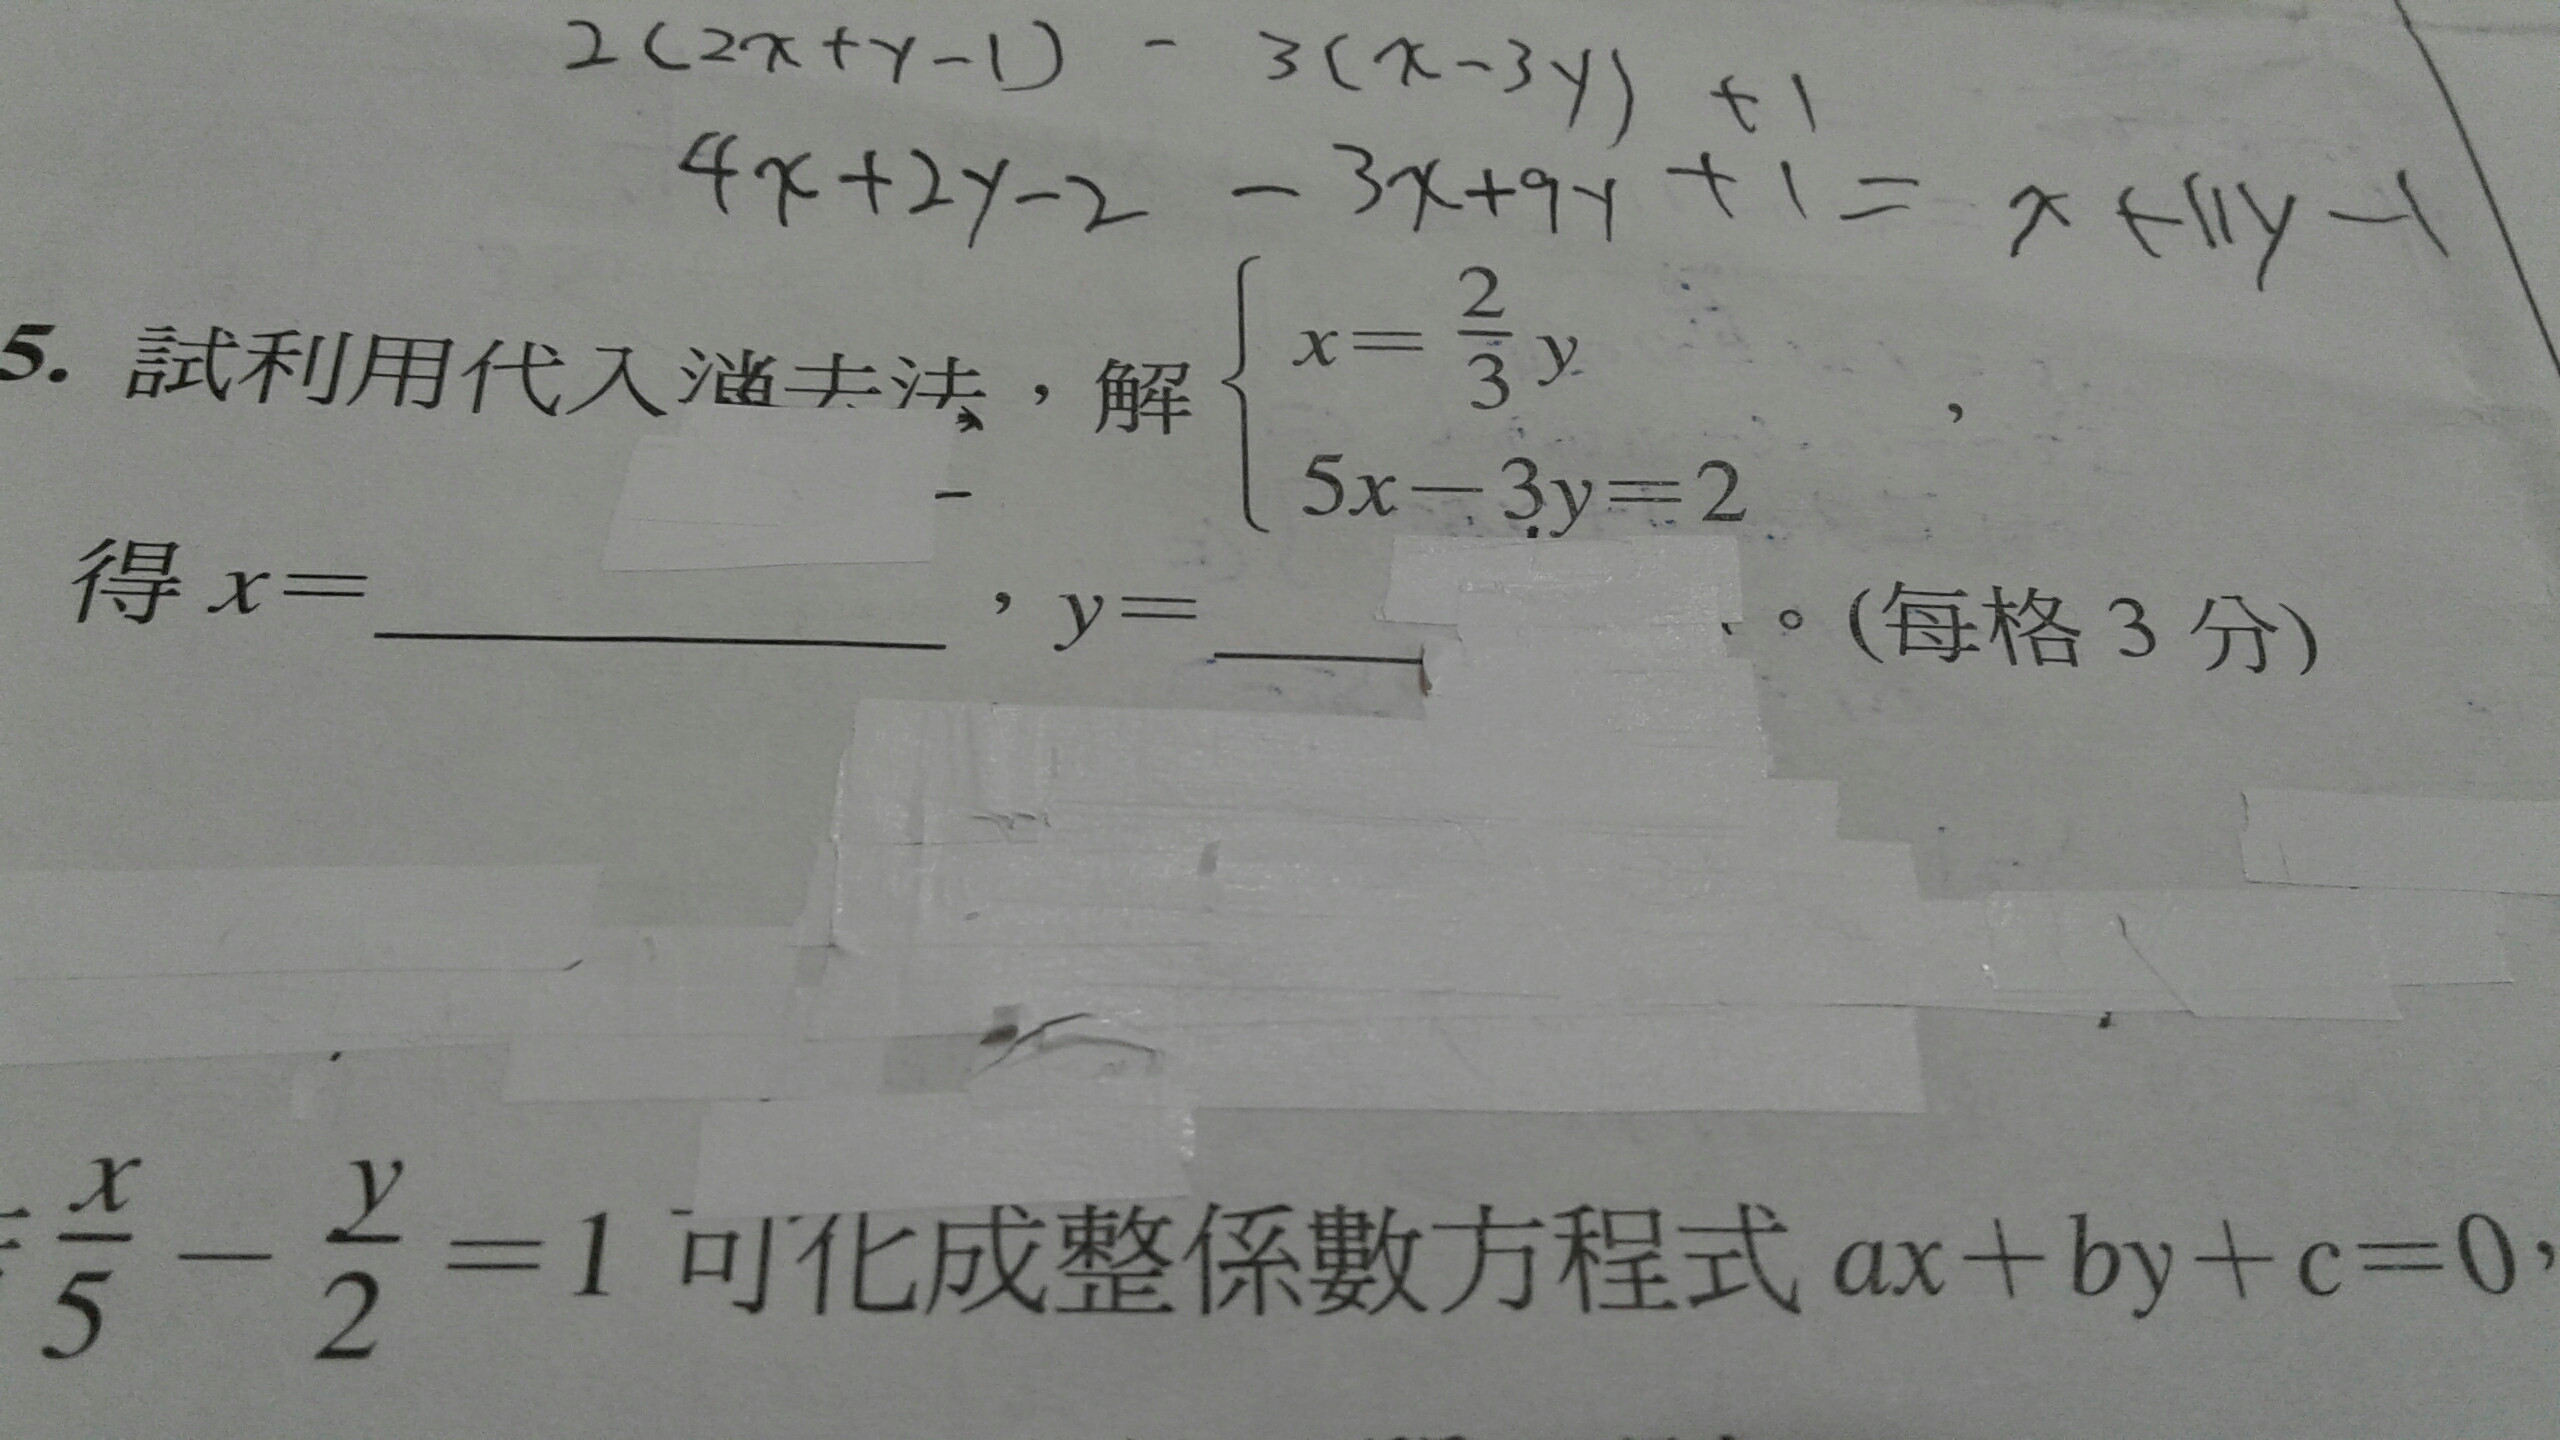 2(2x+y-1) - 3(x-3y) +1
4x+2y-2 -3x+9y +1 = x+11y-1
5. 試利用代入消去法，解 { x=2/3 y ，
5x-3y=2
得 x=________，y=____。(每格 3 分)
x/5 - y/2 =1 可化成整係數方程式 ax+by+c=0，